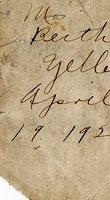 Mrs
Berth
Yelle
April
19, 192